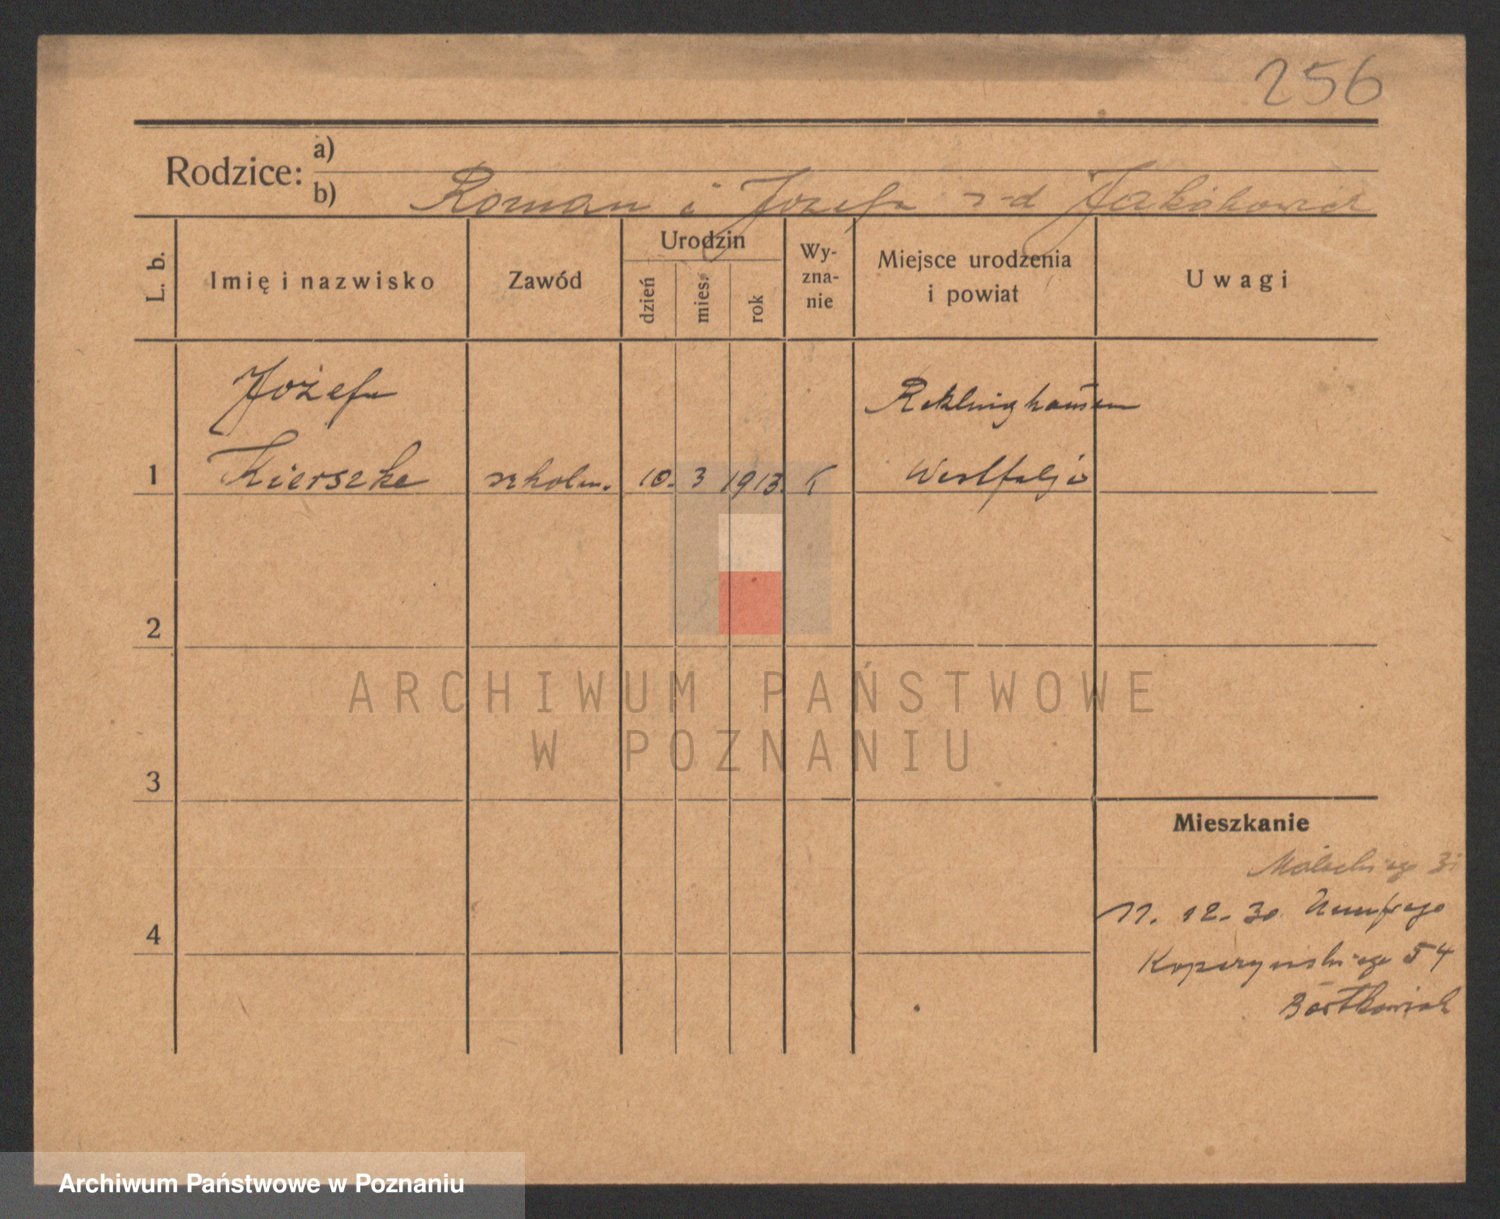 256
Rodzice:
a)
b) Roman i Józefa z-d Jakóbowicz
L. b.
Imię i nazwisko
Zawód
Urodzin
dzień
mies.
rok
Wy-
zna-
nie
Miejsce urodzenia
i powiat
Uwagi
Józefa
Reklinghausen
1 Kierszke szkoln. 10. 3 1913. k Westfalja
2
ARCHIWUM PAŃSTWOWE
W POZNANIU
3
Mieszkanie
Małeckiego
11. 12. 30
4
Kopczyńskiego 54
Bartkowiak
Archiwum Państwowe w Poznaniu